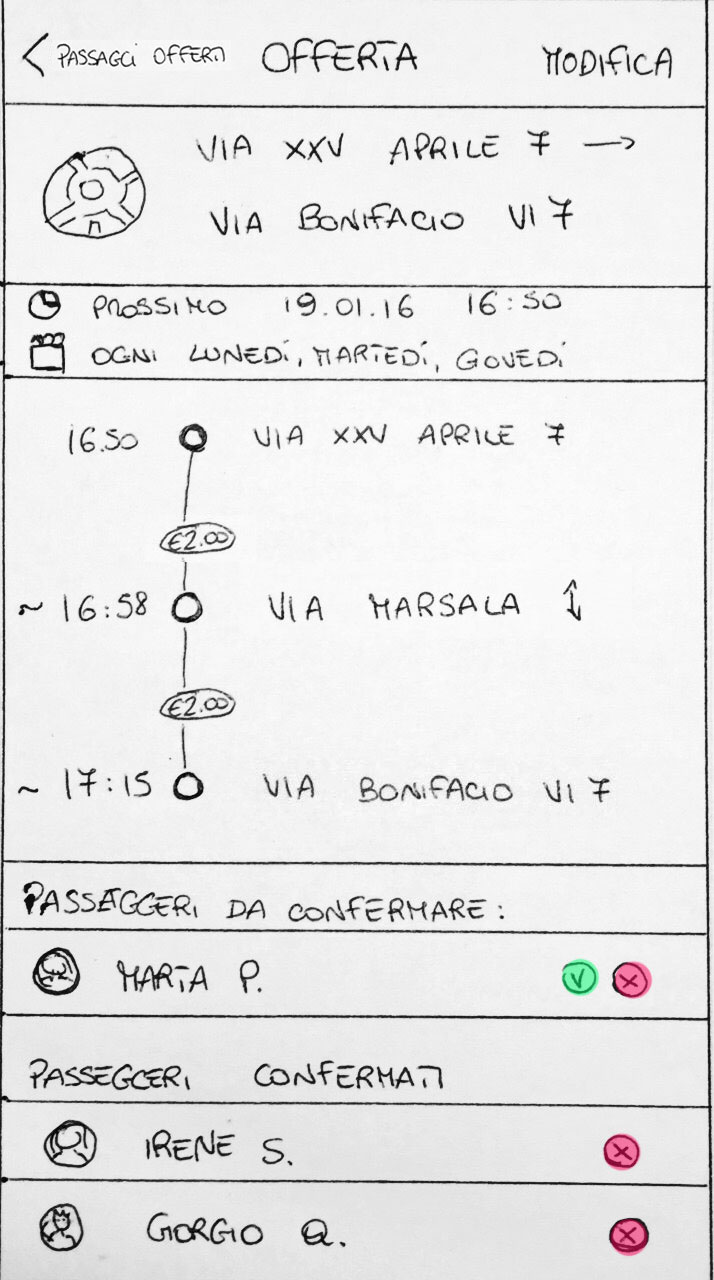 < PASSAGGI OFFERTI OFFERTA MODIFICA
VIA XXV APRILE 7 →
VIA BONIFACIO VI 7
PROSSIMO 19.01.16 16:50
OGNI LUNEDÍ, MARTEDÍ, GOVEDÍ
16.50 VIA XXV APRILE 7
€2.00
~ 16:58 VIA MARSALA ↕
€2.00
~ 17:15 VIA BONIFACIO VI 7
PASSAGGERI DA CONFERMARE:
MARTA P. V X
PASSEGGERI CONFERMATI
IRENE S. X
GIORGIO Q. X